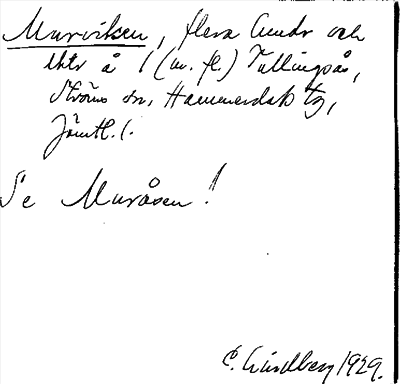 Murviken, flera lmdr och
lhtr å 1 (m. fl.) Tullingsås,
Ströms sn, Hammerdals tg,
Jämtl. l.
Se Muråsen!
E. Lindberg 1929.